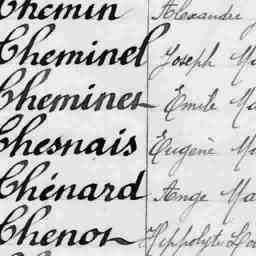 Chemin Alexandre
Cheminel Joseph Ma
Cheminet Emile Ma
Chesnais Eugène Ma
Chénard Ange Ma
Chenot Hippolyte Lou